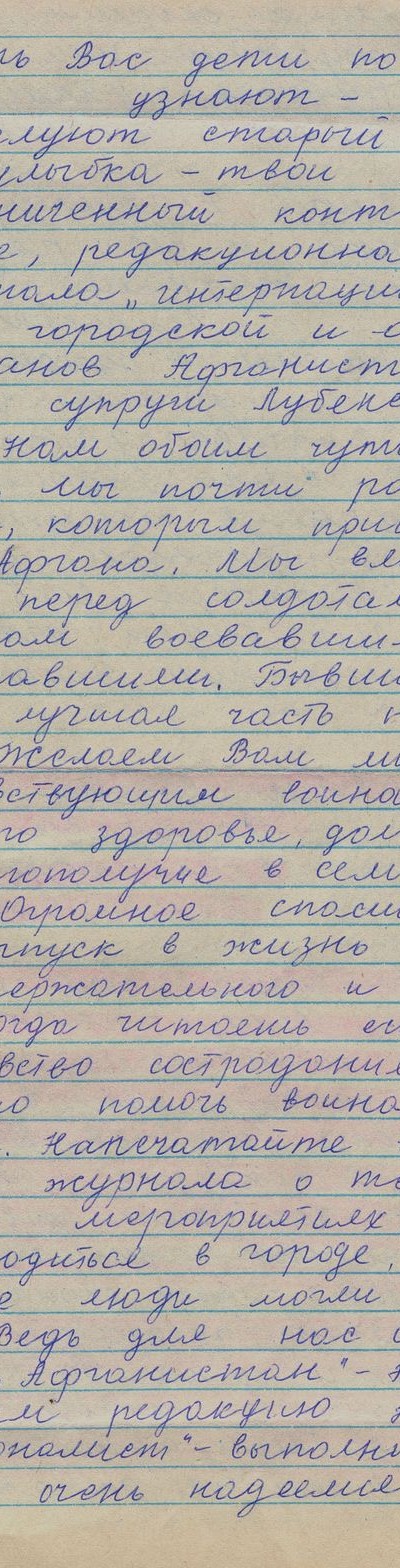 ть Вас дети по
узнают -
слуют старый
улыбка - твои
ниченный конт
е, редакционна
нала „интернаци
городской и о
анов Афганист
супруги Лубенс
Нам обоим чут
, мы почти ро
, которым приш
Афгана. Мы вм
перед солдатам
ам воевавши-
авшими. Бывши
лучшая часть н
Желаем Вам ми
вствующим воина
го здоровье, дол
гополучие в сем
Огромное спаси
ыпуск в жизнь
держательного и
огда читаешь ег
вство сострадание
но помочь воина
. Напечатайте
журнала о то
мероприятиях
одиться в городе,
е люди могли
Ведь для нас с
Афганистан" -
м редакцию ж
оналист" - выполни
очень надеемся